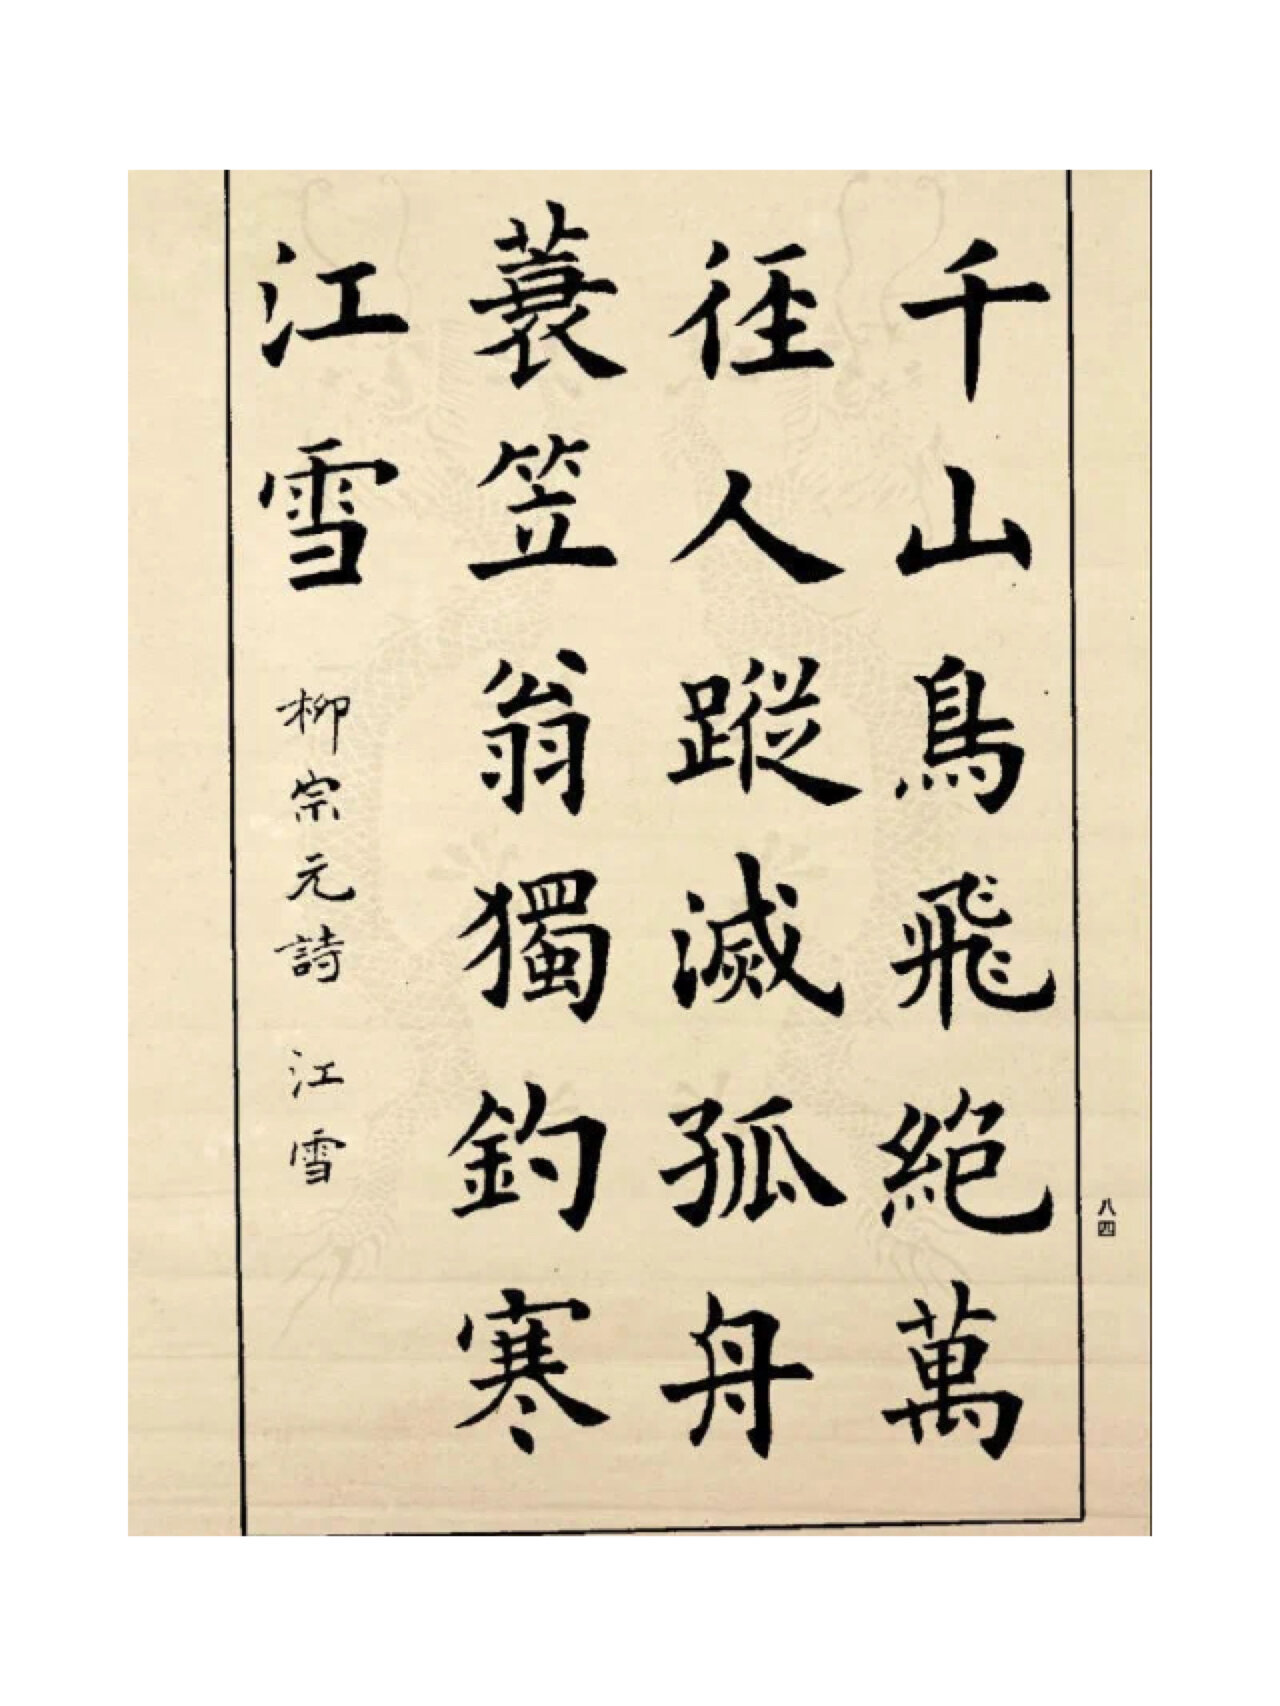 千山鳥飛絕萬
徑人蹤滅孤舟
蓑笠翁獨釣寒
江雪
柳宗元詩 江雪
八四